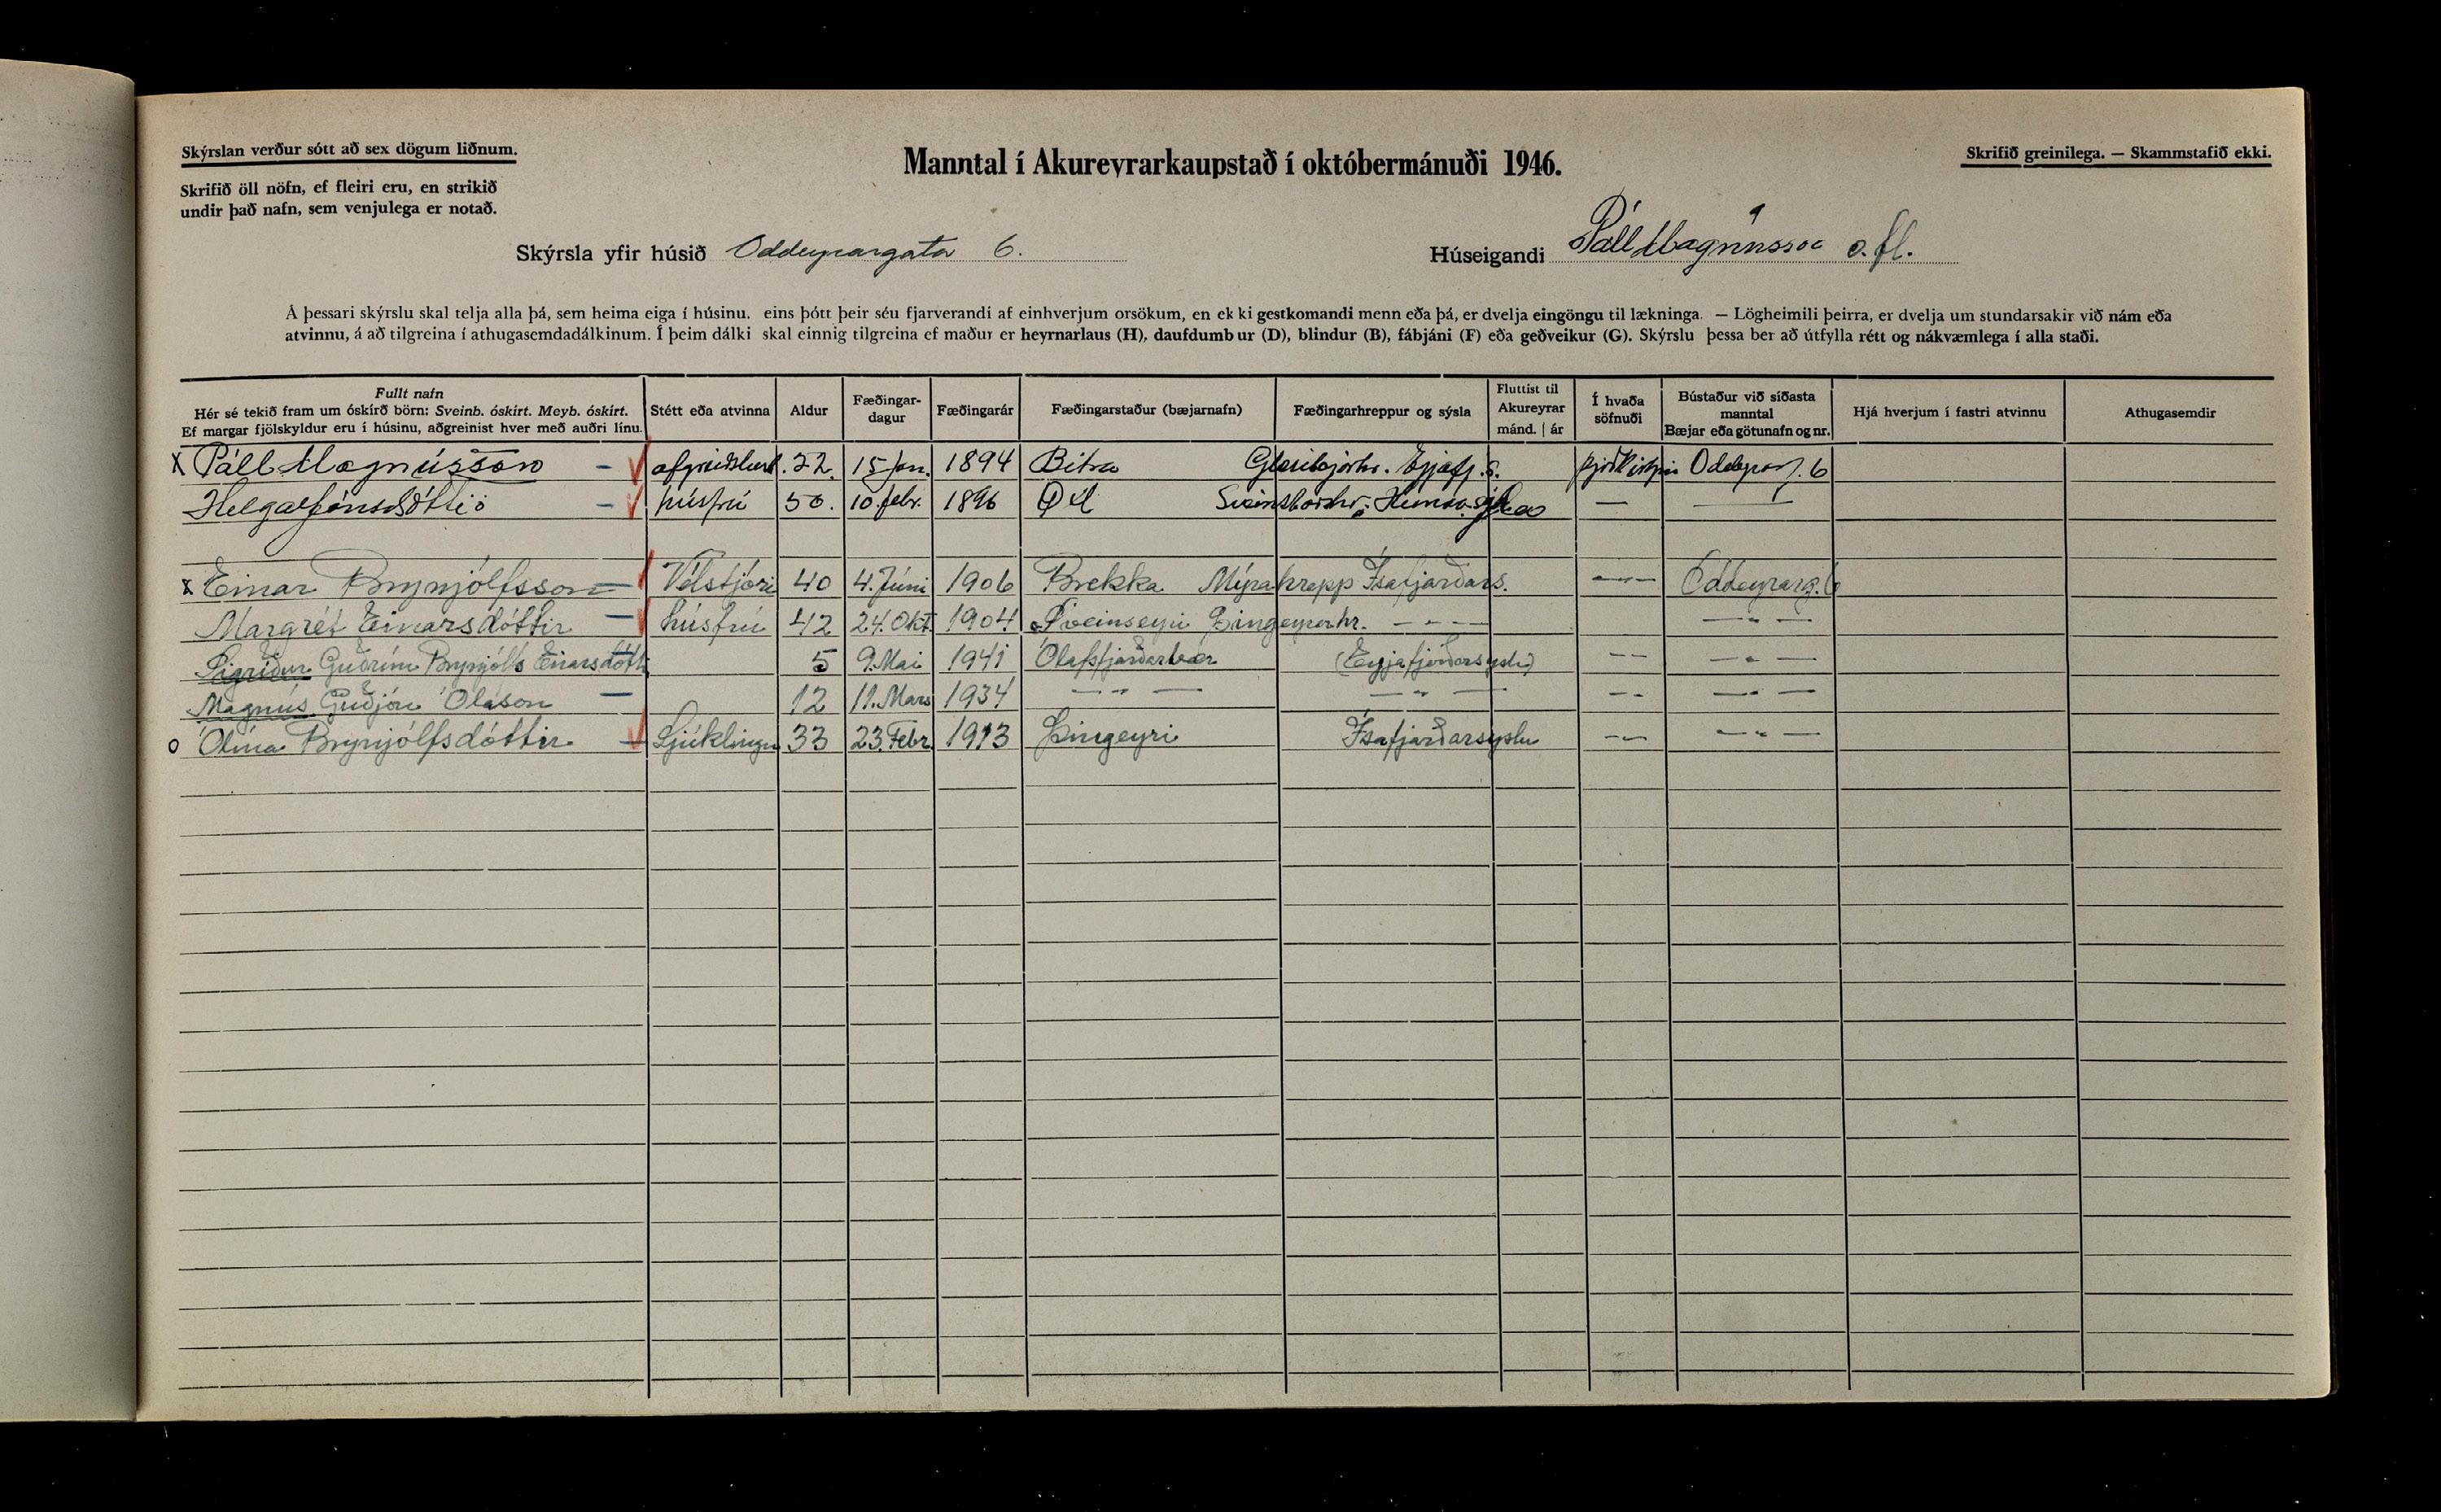 Skýrslan verður sótt að sex dögum liðnum.
Manntal í Akureyrarkaupstað í októbermánuði 1946.
Skrifið greinilega. — Skammstafið ekki.
Skrifið öll nöfn, ef fleiri eru, en strikið
undir það nafn, sem venjulega er notað.
Skýrsla yfir húsið Oddeyrargata 6.
Húseigandi Páll Magnússon o. fl.
Á þessari skýrslu skal telja alla þá, sem heima eiga í húsinu, eins þótt þeir séu fjarverandi af einhverjum orsökum, en ek ki gestkomandi menn eða þá, er dvelja eingöngu til lækninga. — Lögheimili þeirra, er dvelja um stundarsakir við nám eða
atvinnu, á að tilgreina í athugasemdadálkinum. Í þeim dálki skal einnig tilgreina ef maður er heyrnarlaus (H), daufdumb ur (D), blindur (B), fábjáni (F) eða geðveikur (G). Skýrslu þessa ber að útfylla rétt og nákvæmlega í alla staði.
Fullt nafn
Hér sé tekið fram um óskírð börn: Sveinb. óskírt. Meyb. óskírt.
Ef margar fjölskyldur eru í húsinu, aðgreinist hver með auðri línu.
Stétt eða atvinna
Aldur
Fæðingar-
dagur
Fæðingarár
Fæðingarstaður (bæjarnafn)
Fæðingarhreppur og sýsla
Fluttist til
Akureyrar
mánd. | ár
Í hvaða
söfnuði
Bústaður við síðasta
manntal
Bæjar eða götunafn og nr.
Hjá hverjum í fastri atvinnu
Athugasemdir
X Páll Magnússon 15 Jan. 1894 Bitra Glæsibæjarhr. Eyjafj.s. Þjóðkirkjan Oddeyrarg. 6
Helga Jónsdóttir húsfrú 50. 10. febr. 1896 —
x Einar Brynjólfsson Vélstjóri 40 4. Júni 1906 Brekka Mýrahrepp Ísafjarðars. — " — Oddeyrarg. 6
Margrét Einarsdóttir húsfrú 42 24. Okt 1904 Sveinseyri Þingeyrarhr. — " — — " —
Sigríður Guðrún Brynjólfs Einarsdótt 5 9. Mai 1941 Ólafsfjarðarbær (Eyjafjarðarsýslu) — " — — " —
Magnús Guðjón Ólason 12 11. Mars 1934 — " — — " — — " — — " —
o Ólína Brynjólfsdóttir Sjúklingur 33 23. Febr 1913 Þingeyri Ísafjarðarsýslu — " — — " —